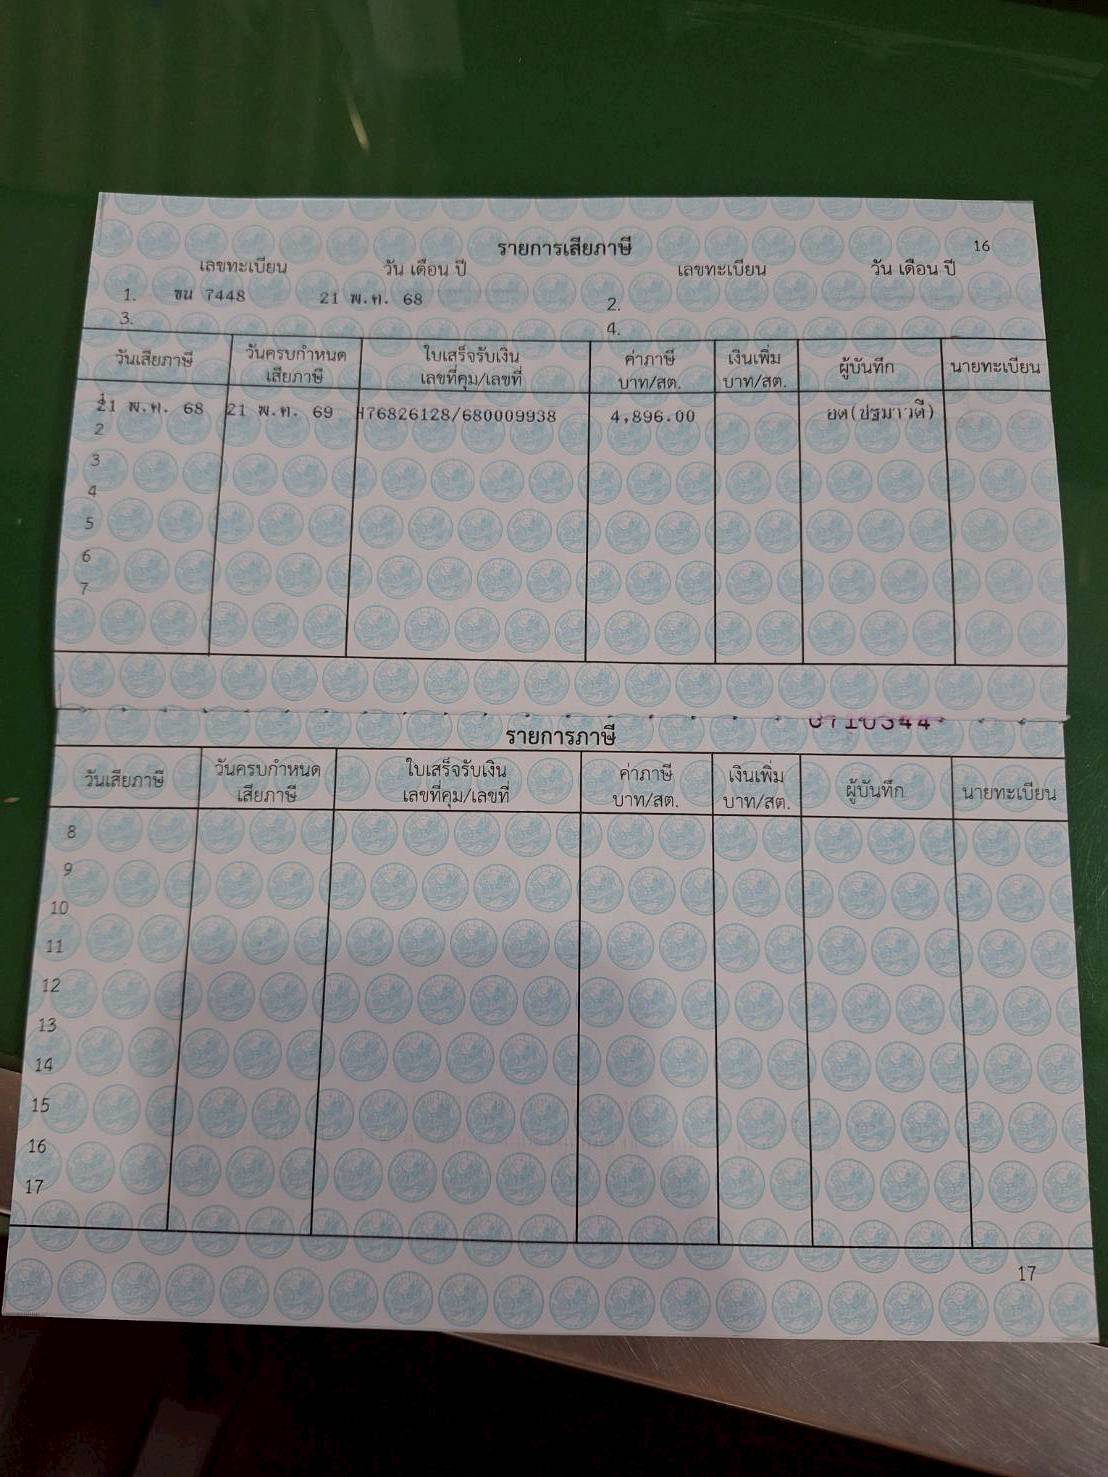 รายการเสียภาษี 16
เลขทะเบียน วัน เดือน ปี เลขทะเบียน วัน เดือน ปี
1. ขน 7448 21 พ.ค. 68 2.
3. 4.
วันเสียภาษี วันครบกำหนด เสียภาษี ใบเสร็จรับเงิน เลขที่คุม/เลขที่ ค่าภาษี บาท/สต. เงินเพิ่ม บาท/สต. ผู้บันทึก นายทะเบียน
1
21 พ.ค. 68 21 พ.ค. 69 476826128/680009938 4,896.00 ยด(ปฐมาวดี)
2
3
4
5
6
7
รายการภาษี
วันเสียภาษี วันครบกำหนด เสียภาษี ใบเสร็จรับเงิน เลขที่คุม/เลขที่ ค่าภาษี บาท/สต. เงินเพิ่ม บาท/สต. ผู้บันทึก นายทะเบียน
8
9
10
11
12
13
14
15
16
17
17